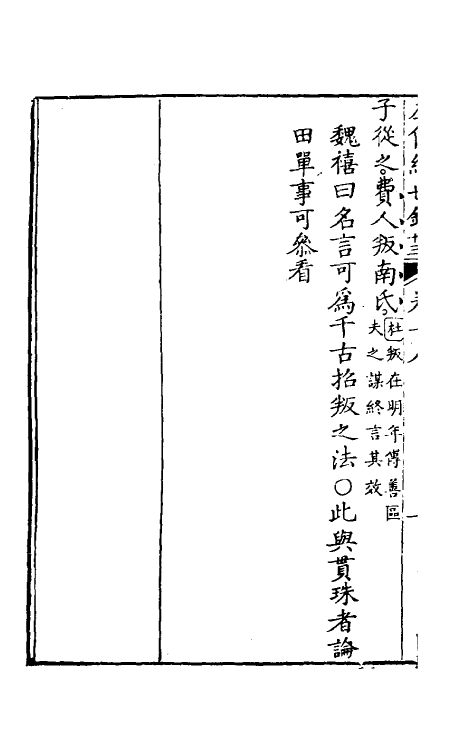 子從之費人叛南氏杜叛在明年傳善區
夫之謀終言其效
魏禧曰名言可為千古招叛之法〇此與貫珠者論
田單事可叅看